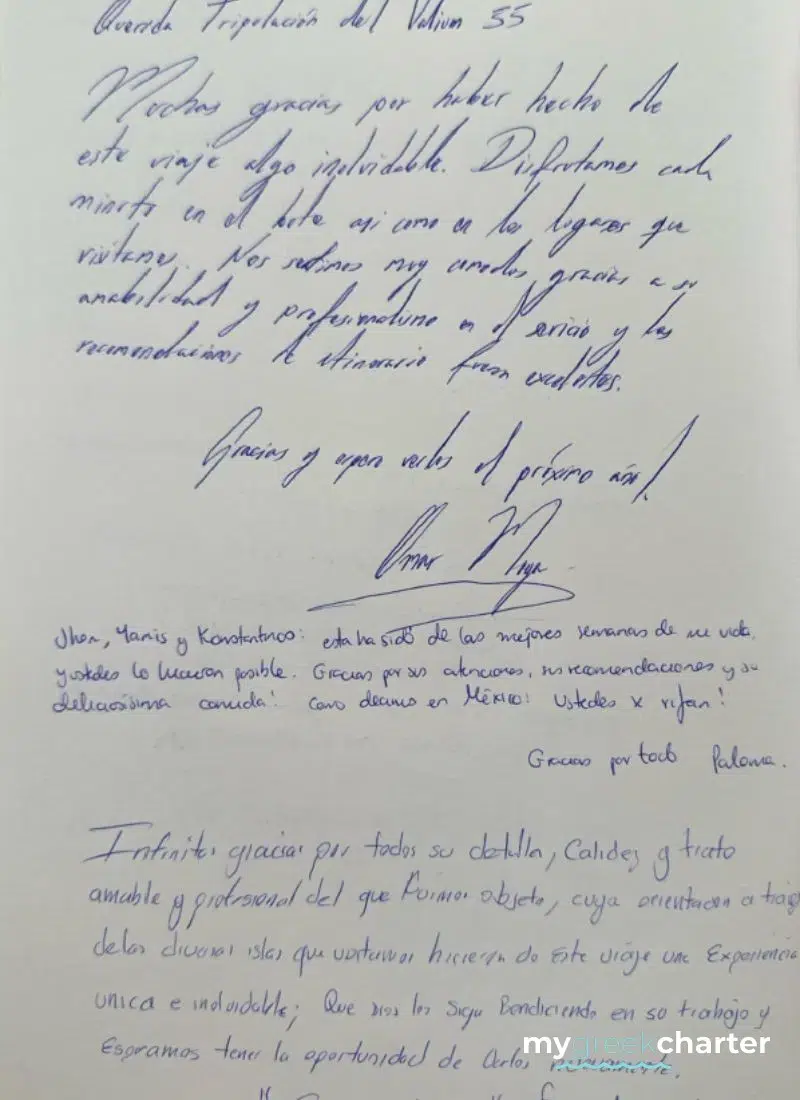 Querida Tripulación del Valium 55
Muchas gracias por haber hecho de
este viaje algo inolvidable. Disfrutamos cada
minuto en el bote asi como en los lugares que
visitamos. Nos sentimos muy comodos gracias a su
amabilidad y profesionalismo en el servicio y las
recomendaciones de itinerario fueron excelentes.
Gracias y espero verlos el próximo año!
Omar
Jhon, Yannis y Konstantinos: esta ha sido de las mejores semanas de mi vida,
y ustedes lo hicieron posible. Gracias por sus atenciones, sus recomendaciones y su
deliciosísima comida! Como decimos en México: Ustedes x rifan!
Gracias por todo Paloma.
Infinitas gracias por todos su detalla, Calidez y trato
amable y profesional del que fuimos objeto, cuya orientacion a
delas diversas islas que visitamos hicieron de Este viaje una Experiencia
unica e inolvidable; Que Dios los Siga Bendiciendo en su trabajo y
Esperamos tener la oportunidad de Verlos nuevamente.
mygreekcharter